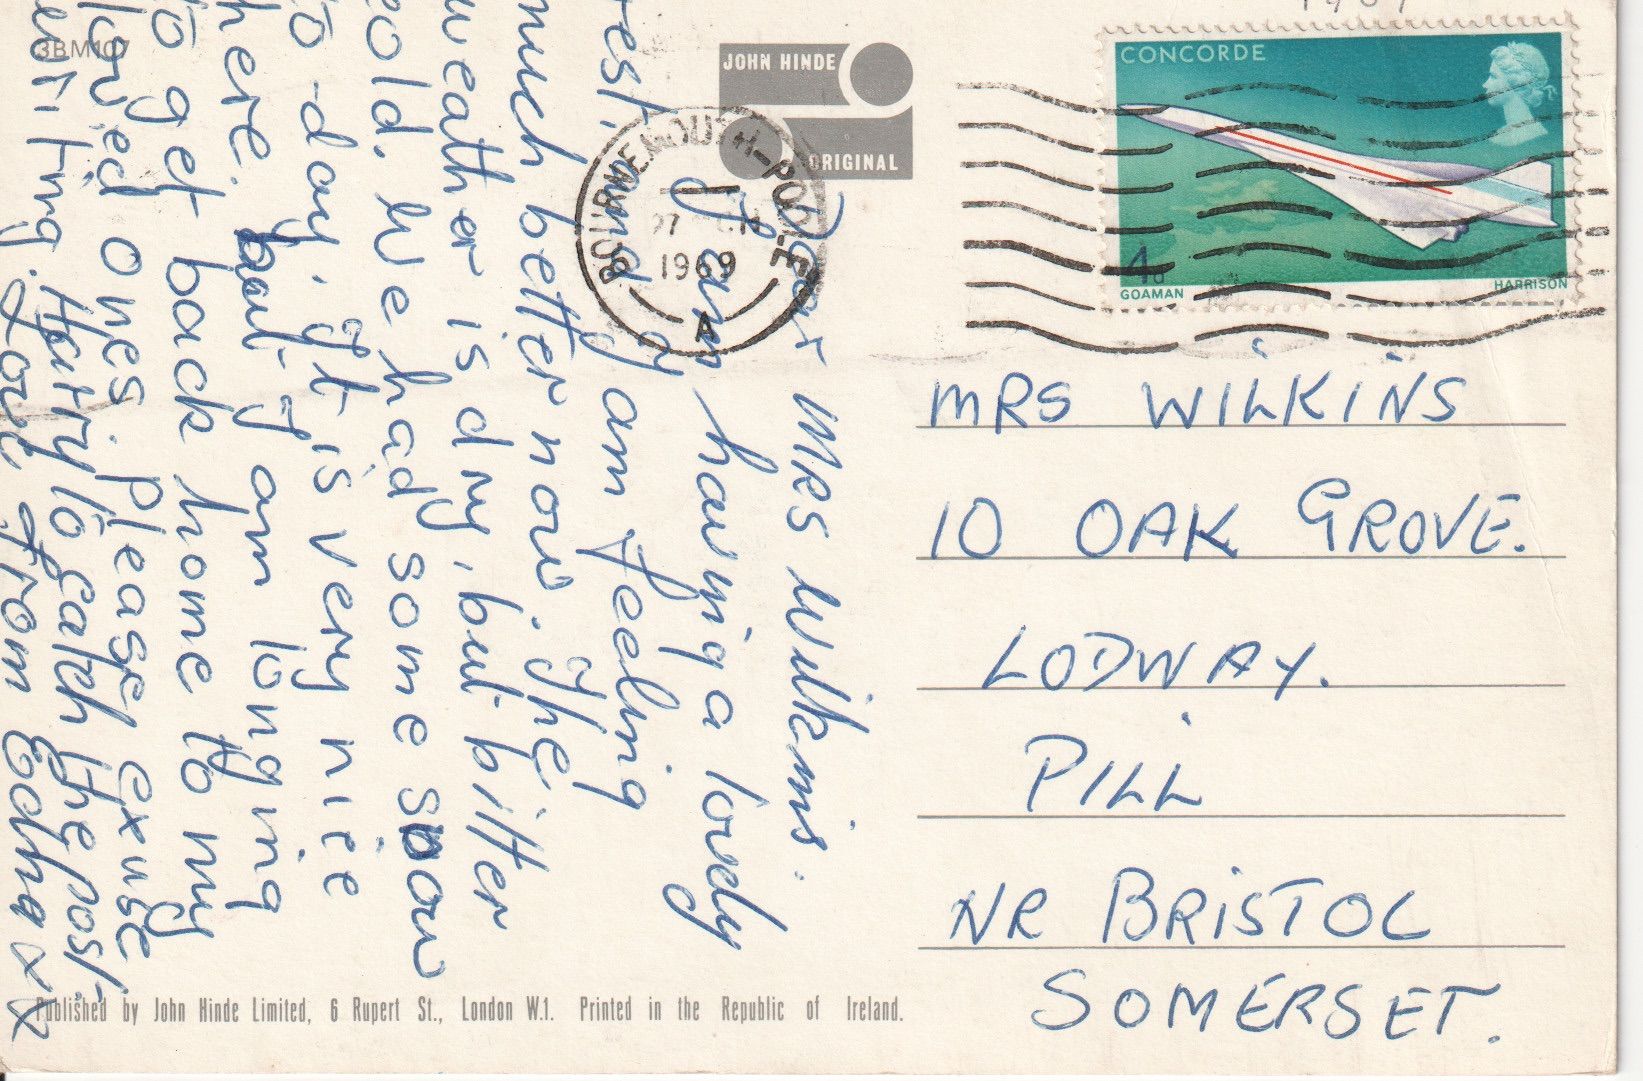 3BM107
JOHN HINDE
ORIGINAL
BOURNEMOUTH-POOLE
27
1969
A
CONCORDE
4d
GOAMAN
HARRISON
Dear Mrs Wilkins.
I am having a lovely
rest, and I am feeling
much better now. The
weather is dry, but bitter
cold. We had some snow
to-day. It is very nice
here. but I am longing
to get back home to my
loved ones. Please excuse
writing. Hurry to catch the post.
Love from Edna xx
MRS WILKINS
10 OAK GROVE.
LODWAY.
PILL
NR BRISTOL
SOMERSET.
Published by John Hinde Limited, 6 Rupert St., London W.1. Printed in the Republic of Ireland.